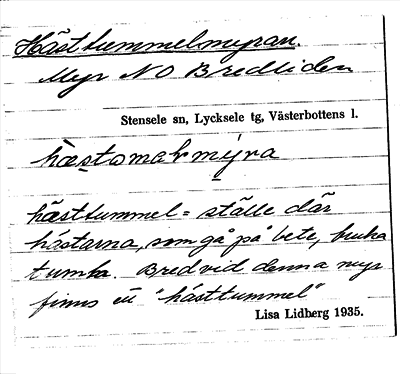 Hästtummelmyran.
Myr NO Bredliden
Stensele sn, Lycksele tg, Västerbottens l.
hästtummel = ställe där
hästarna, som gå på bete, bruka
tumla. Bredvid denna myr
finns en "hästtummel"
Lisa Lidberg 1935.